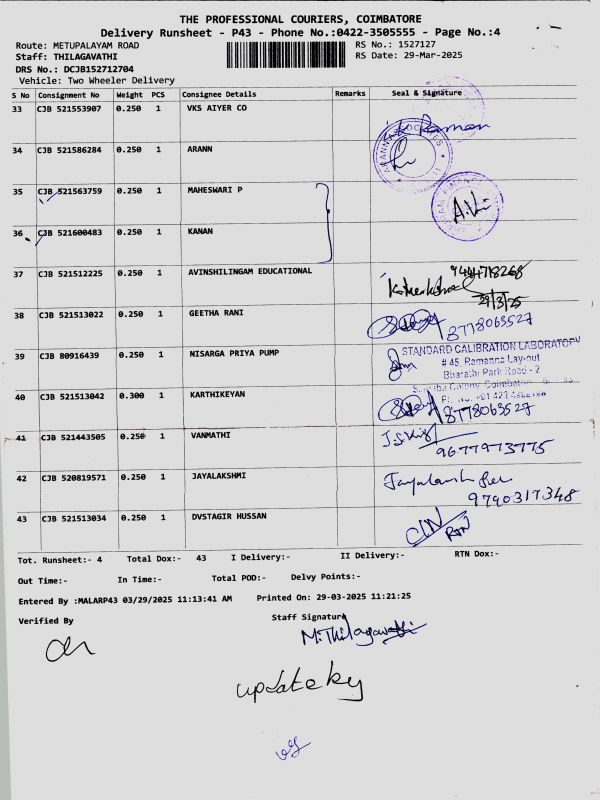 THE PROFESSIONAL COURIERS, COIMBATORE
Delivery Runsheet - P43 - Phone No.:0422-3505555 - Page No.:4
Route: METUPALAYAM ROAD RS No.: 1527127
Staff: THILAGAVATHI RS Date: 29-Mar-2025
DRS No.: DCJB152712704
Vehicle: Two Wheeler Delivery
S No Consignment No Weight PCS Consignee Details Remarks Seal & Signature
33 CJB 521553907 0.250 1 VKS AIYER CO
Raman
34 CJB 521586284 0.250 1 ARANN
35 CJB 521563759 0.250 1 MAHESWARI P
36 CJB 521600483 0.250 1 KANAN
37 CJB 521512225 0.250 1 AVINSHILINGAM EDUCATIONAL
9444718268
29/3/25
38 CJB 521513022 0.250 1 GEETHA RANI
8778063527
39 CJB 80916439 0.250 1 NISARGA PRIYA PUMP
STANDARD CALIBRATION LABORATORY
# 45, Ramanna Lay-out
Bharathi Park Road - 2
Colony Coimbatore
40 CJB 521513042 0.300 1 KARTHIKEYAN
8778063527
41 CJB 521443505 0.250 1 VANMATHI
9677973775
42 CJB 520819571 0.250 1 JAYALAKSHMI
9790317348
43 CJB 521513034 0.250 1 DVSTAGIR HUSSAN
CIN
RTN
Tot. Runsheet:- 4 Total Dox:- 43 I Delivery:- II Delivery:- RTN Dox:-
Out Time:- In Time:- Total POD:- Delvy Points:-
Entered By :MALARP43 03/29/2025 11:13:41 AM Printed On: 29-03-2025 11:21:25
Verified By Staff Signature
M.Thilagavathi
update by